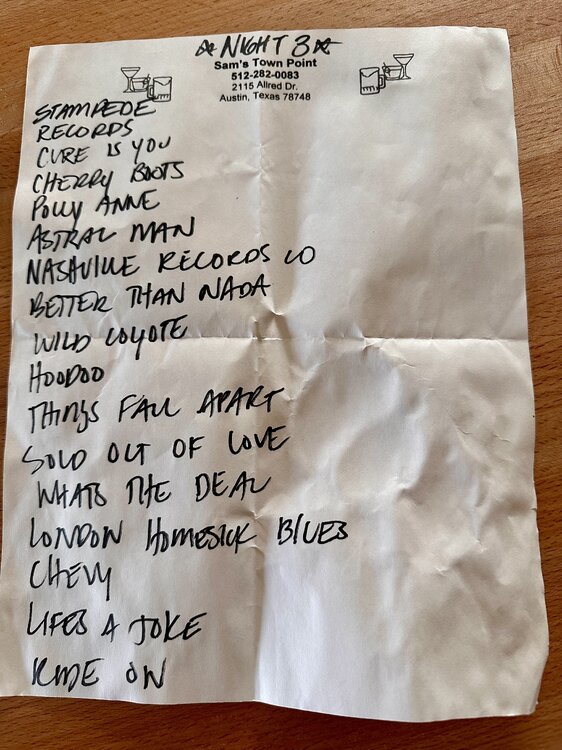 ☆ NIGHT 3 ☆
Sam's Town Point
512-282-0083
2115 Allred Dr.
Austin, Texas 78748
STAMPEDE
RECORDS
CURE IS YOU
CHERRY BOOTS
POLLY ANNE
ASTRAL MAN
NASHVILLE RECORDS CO
BETTER THAN NADA
WILD COYOTE
HOODOO
THINGS FALL APART
SOLD OUT OF LOVE
WHATS THE DEAL
LONDON HOMESICK BLUES
CHEVY
LIFES A JOKE
RIDE ON